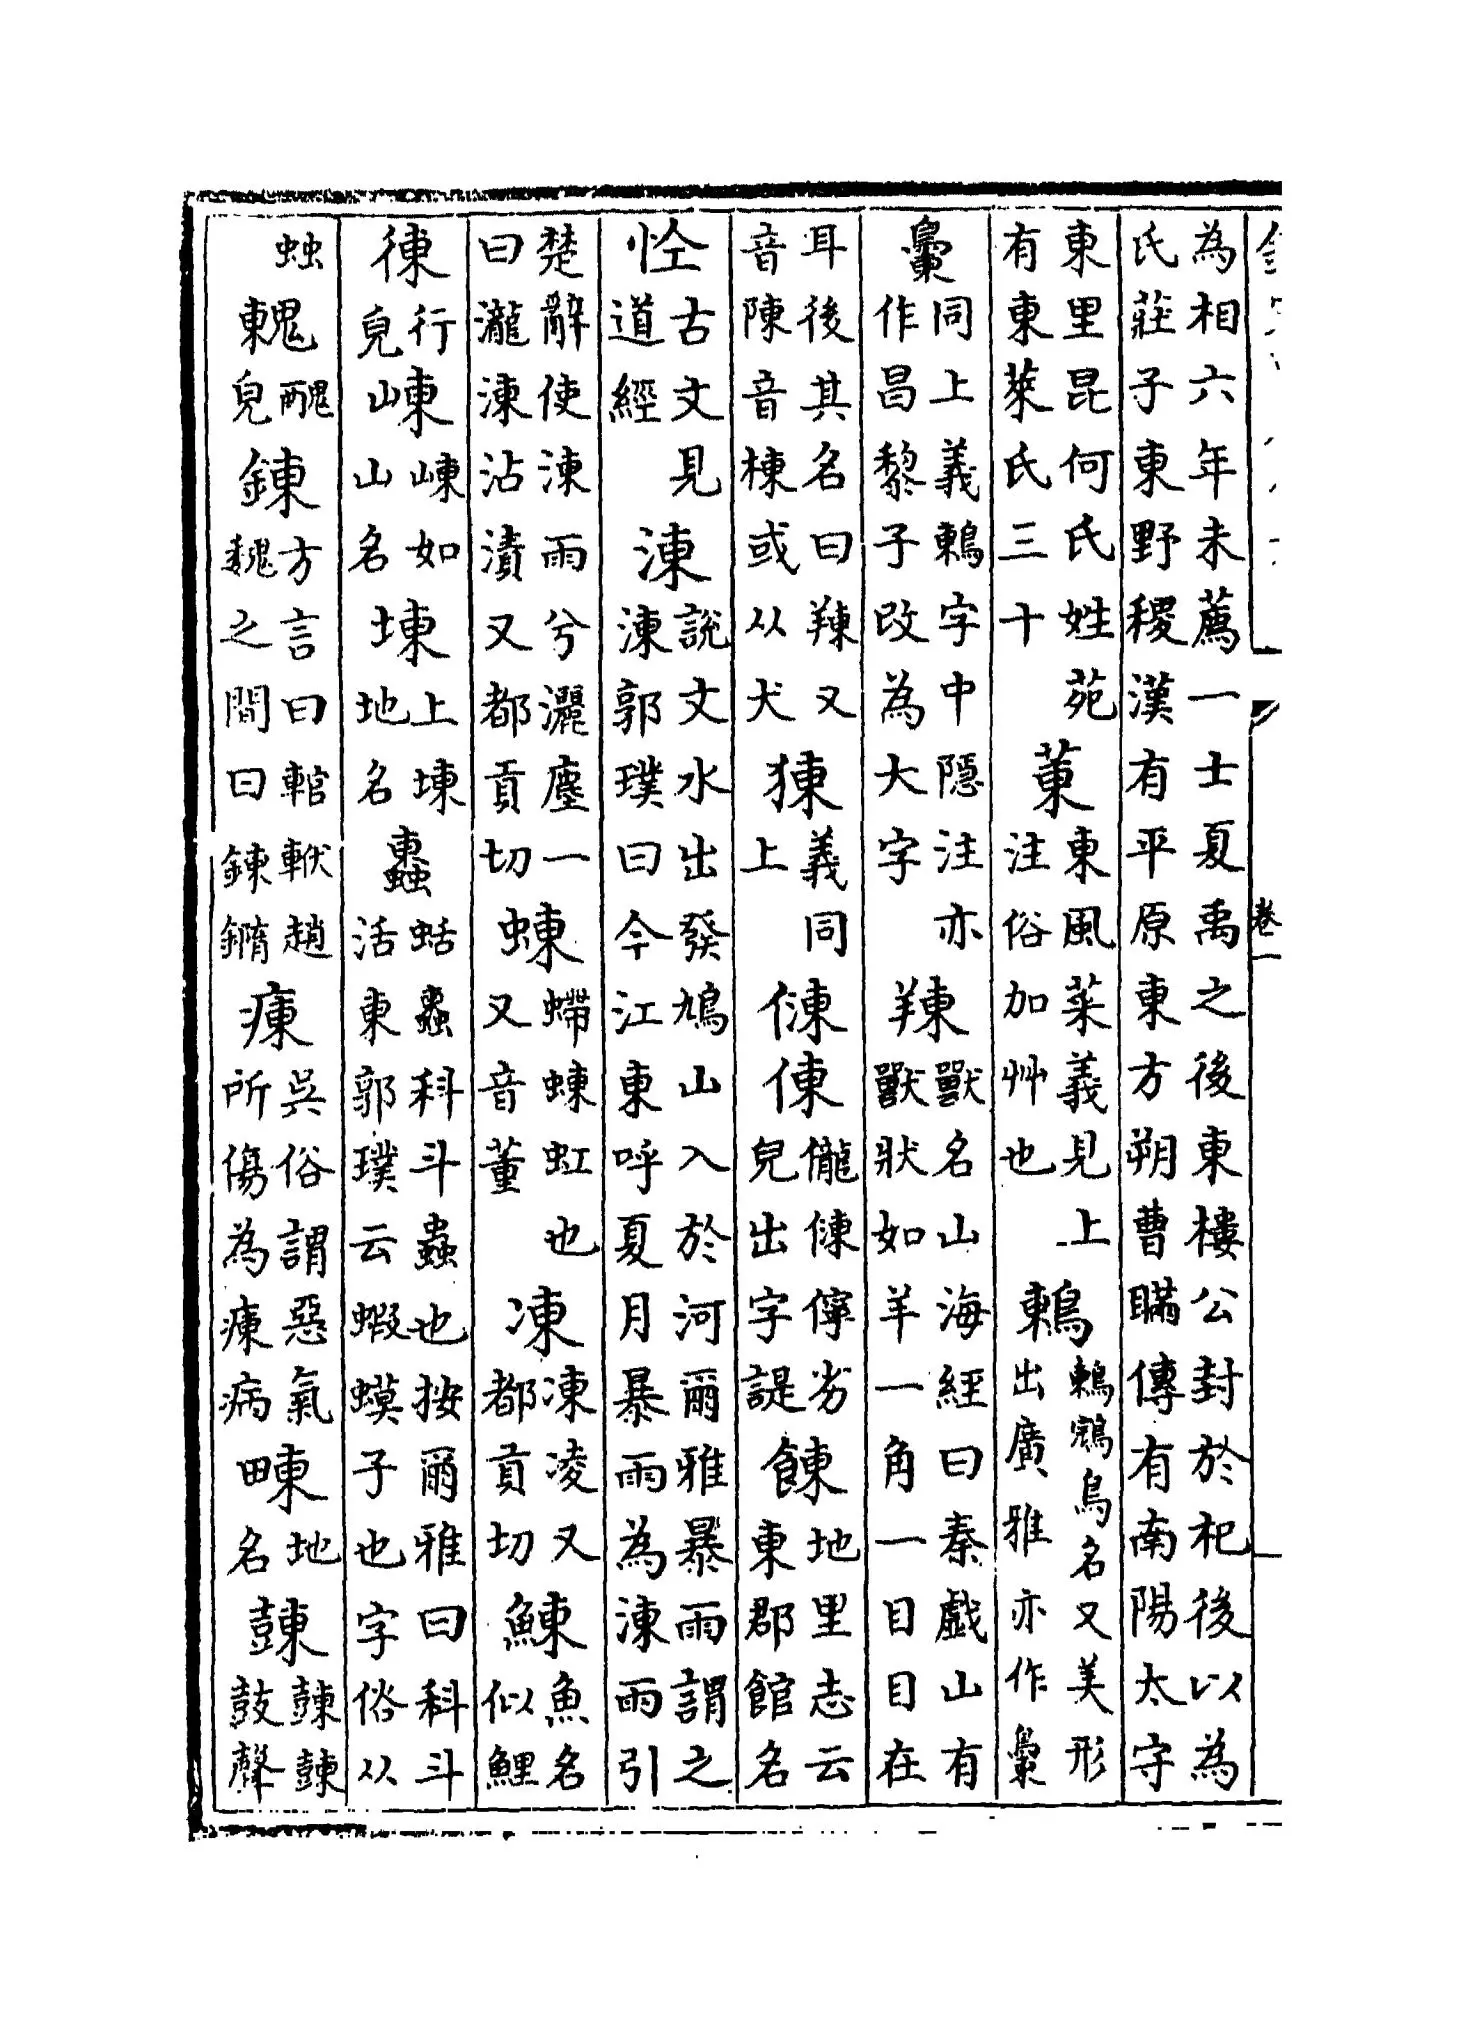 為相六年未薦一士夏禹之後東樓公封於杞後以為
氏莊子東野稷漢有平原東方朔曹瞞傳有南陽太守
東里昆何氏姓苑
有東萊氏三十
菄
東風菜義見上
注俗加艸也
鶇
鶇鵍鳥名又美形
出廣雅亦作𪂝
𪂝
同上義鶇字中隱注亦
作昌黎子改為大字
䍶
獸名山海經曰秦戲山有
獸狀如羊一角一目目在
耳後其名曰䍶又
音陳音棟或从犬
義同
上
𠍀倲
儱𠍀儜劣
皃出字諟
𩜍
地里志云
東郡館名
𢘐
古文見
道經
涷
說文水出發鳩山入於河爾雅暴雨謂之
涷郭璞曰今江東呼夏月暴雨為涷雨引
楚辭使涷雨兮灑塵一
曰瀧涷沾漬又都貢切
蝀
螮蝀虹也
又音董
凍
凍凌又
都貢切
鯟
魚名
似鯉
𢔅
行
皃
崠
崠如
山名
埬
上埬
地名
𧓕
蛞𧓕科斗蟲也按爾雅曰科斗
活東郭璞云蝦蟇子也字俗从
䖵
䰤
醜
皃
鍊
方言曰輨軑趙
魏之間曰鍊𨱍
吳俗謂惡氣
所傷為病
地
名
鼓聲